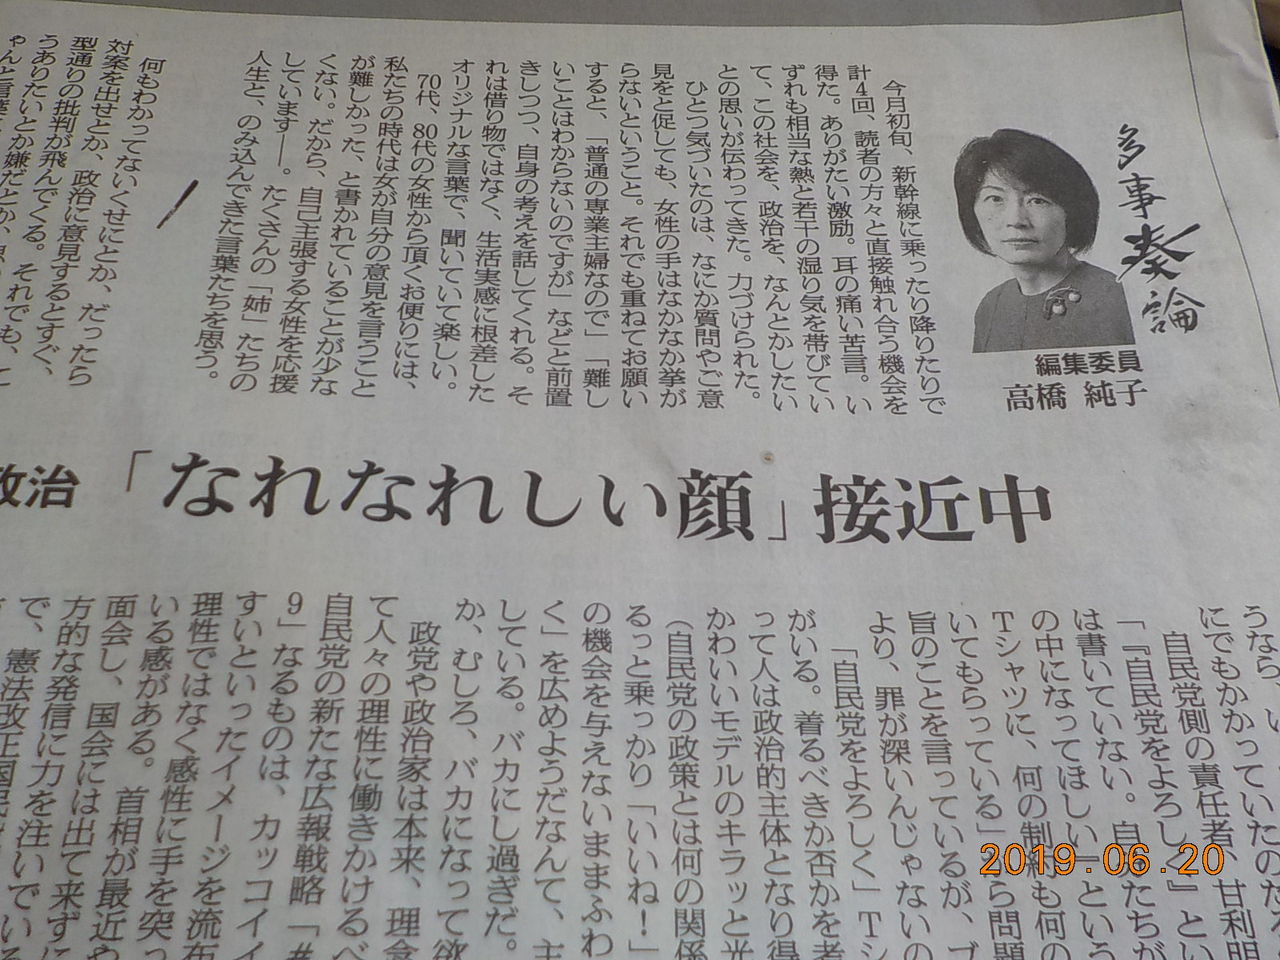 多事奏論
編集委員
高橋 純子
今月初旬、新幹線に乗ったり降りたりで
計4回、読者の方々と直接触れ合う機会を
得た。ありがたい激励。耳の痛い苦言。い
ずれも相当な熱と若干の湿り気を帯びてい
て、この社会を、政治を、なんとかしたい
との思いが伝わってきた。力づけられた。
ひとつ気づいたのは、なにか質問やご意
見をと促しても、女性の手はなかなか挙が
らないということ。それでも重ねてお願い
すると、「普通の専業主婦なので」「難し
いことはわからないのですが」などと前置
きしつつ、自身の考えを話してくれる。そ
れは借り物ではなく、生活実感に根差した
オリジナルな言葉で、聞いていて楽しい。
70代、80代の女性から頂くお便りには、
私たちの時代は女が自分の意見を言うこと
が難しかった、と書かれていることが少な
くない。だから、自己主張する女性を応援
しています――。たくさんの「姉」たちの
人生と、のみ込んできた言葉たちを思う。
何もわかってないくせにとか、だったら
対案を出せとか、政治に意見するとすぐ、
型通りの批判が飛んでくる。それでも、こ
うありたいとか嫌だとか、
ゃんと言葉
政治 「なれなれしい顔」接近中
うなら、い
にでもかかっていたのだろ
自民党側の責任者、甘利明
「『自民党をよろしく』とい
は書いていない。自分たちが
の中になってほしい」という
Tシャツに、何の制約も何の
いてもらっている」から問題
旨のことを言っているが、ブ
より、罪が深いんじゃないの
「自民党をよろしく」Tシ
がいる。着るべきか否かを考
って人は政治的主体となり得
かわいいモデルのキラッと光
（自民党の政策とは何の関係
るっと乗っかり「いいね！」
の機会を与えないままふわ
く」を広めようだなんて、主
している。バカにし過ぎだ。
か、むしろ、バカになって欲
政党や政治家は本来、理念
て人々の理性に働きかけるべ
自民党の新たな広報戦略「#
9」なるものは、カッコイイ
すいといったイメージを流布
理性ではなく感性に手を突っ
いる感がある。首相が最近や
面会し、国会には出て来ずに
方的な発信に力を注いでいる
で、憲法改正国民
2019.06.20